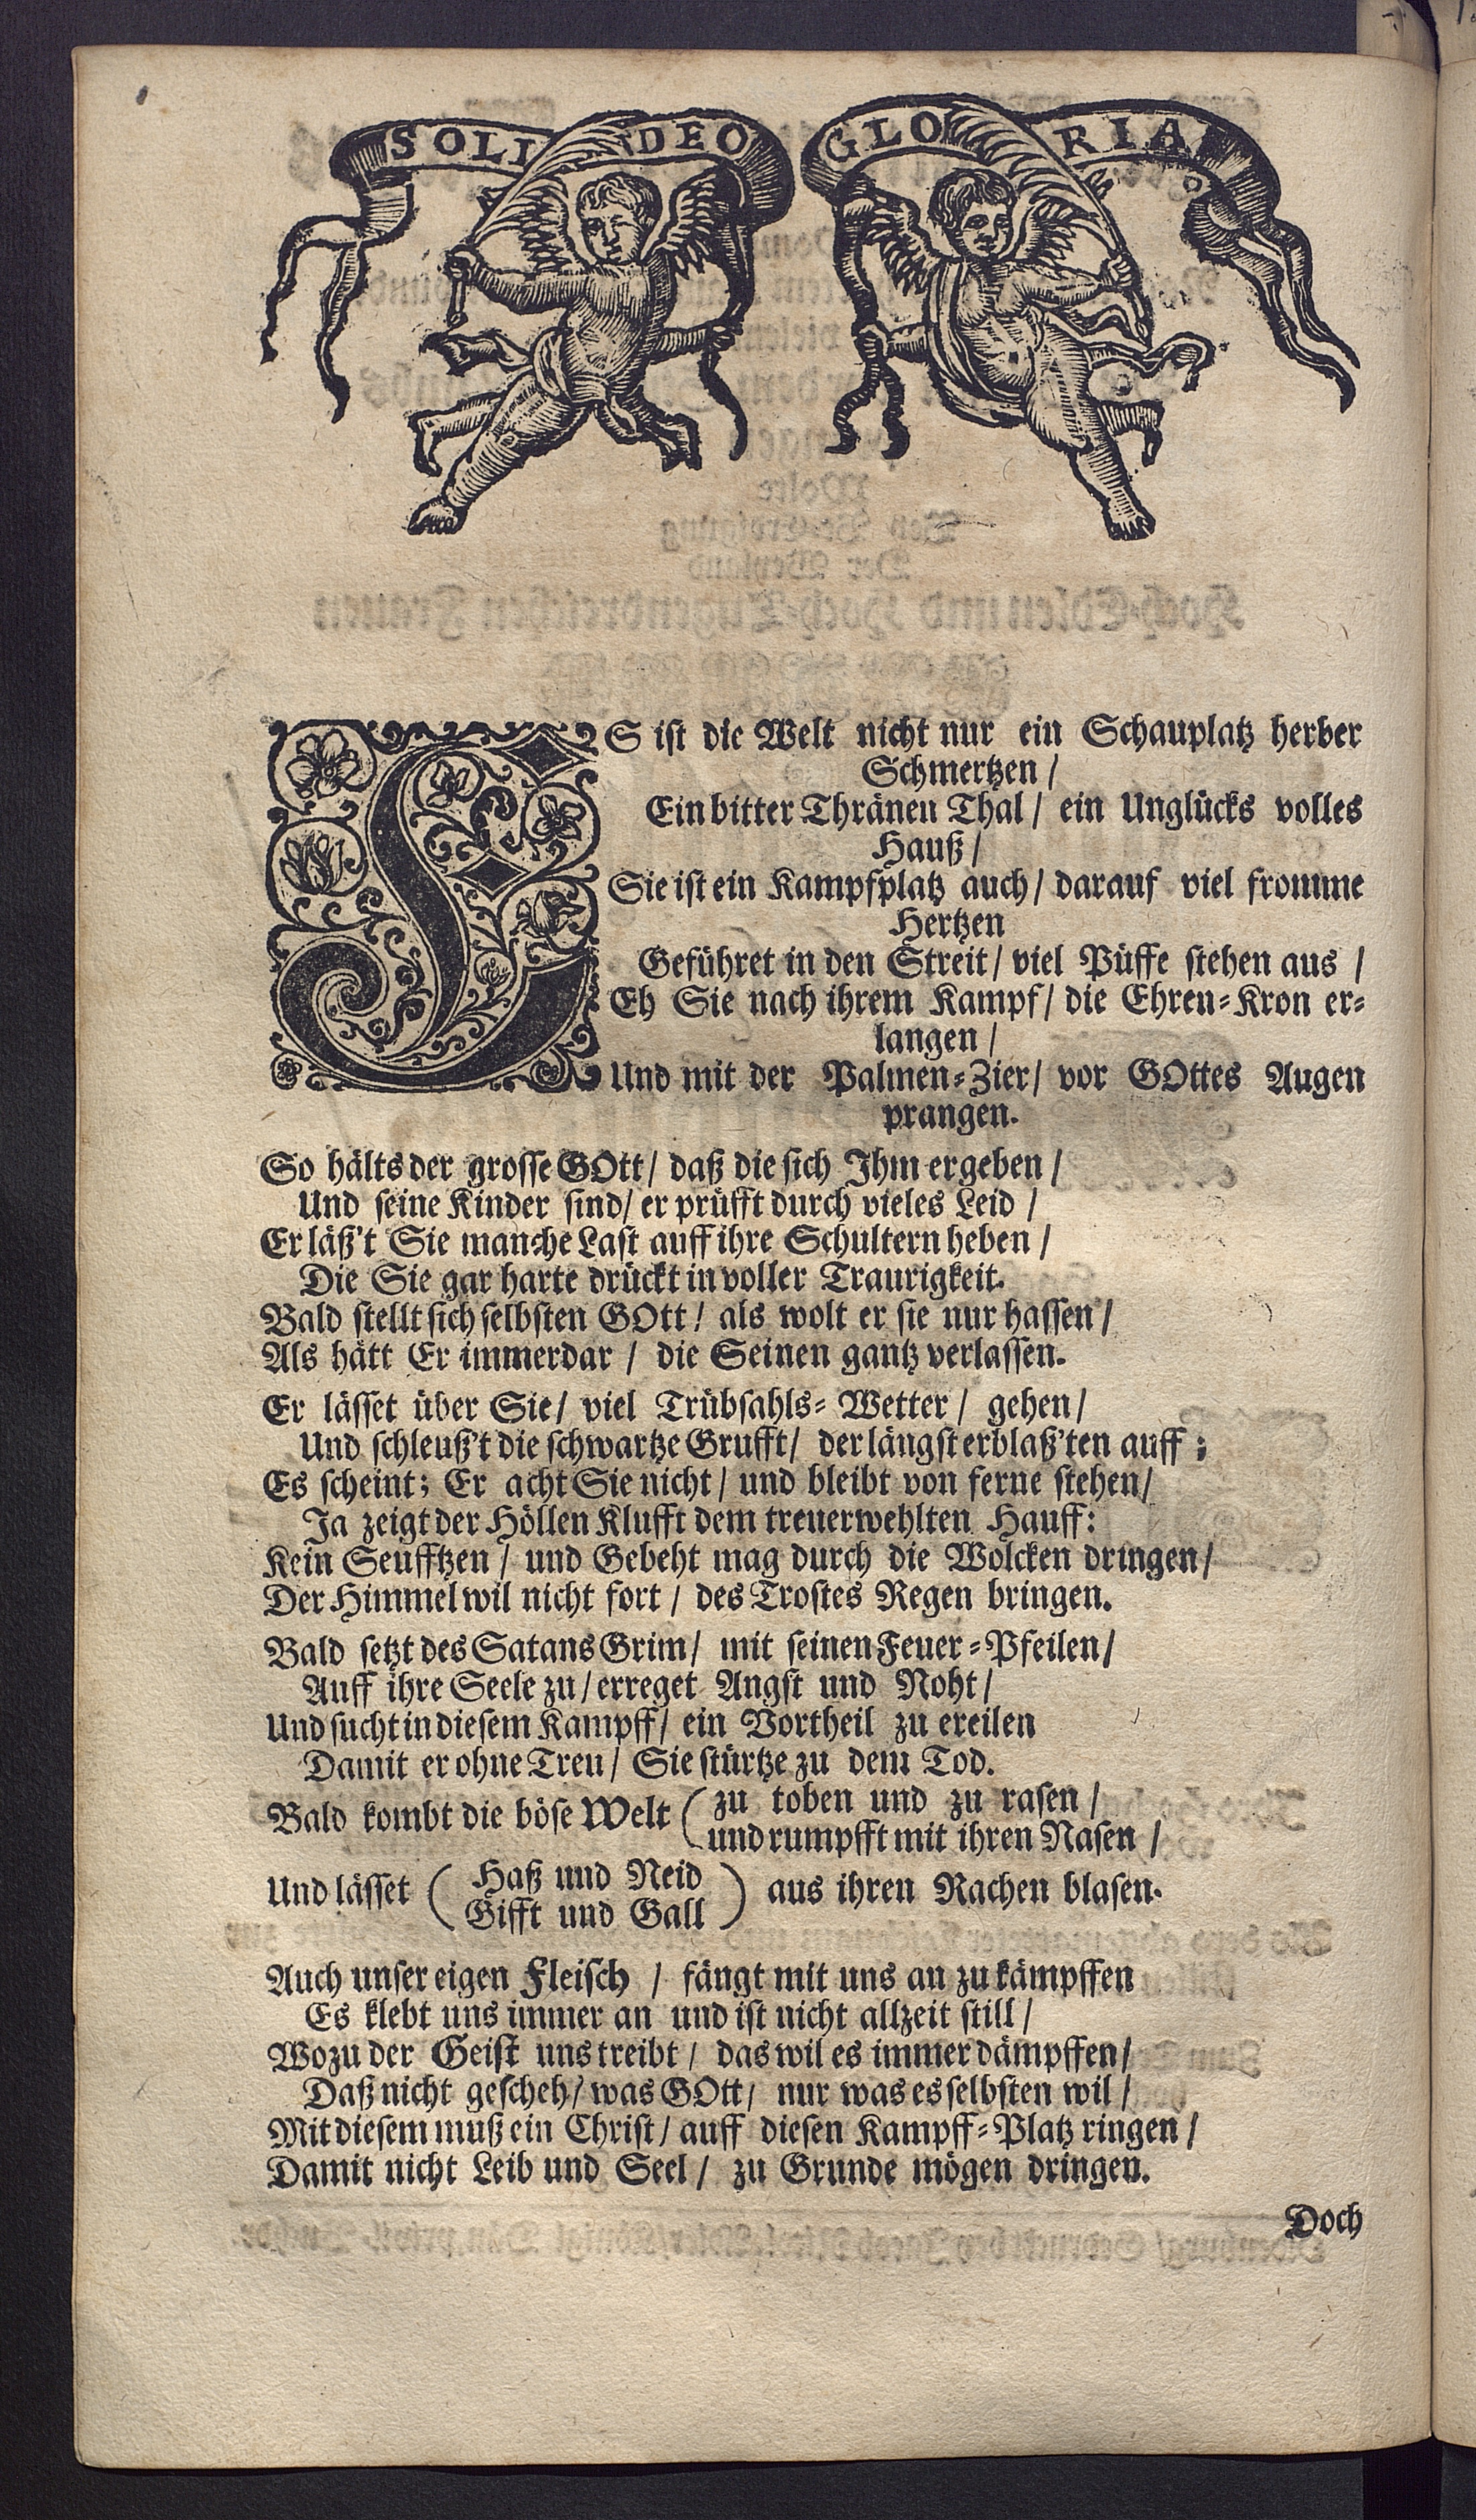 SOLI DEO GLORIA
ES ist die Welt nicht nur ein Schauplatz herber
Schmertzen /
Ein bitter Thränen Thal / ein Unglücks volles
Hauß /
Sie ist ein Kampfplatz auch / darauf viel fromme
Hertzen
Geführet in den Streit / viel Püffe stehen aus /
Eh Sie nach ihrem Kampf / die Ehren-Kron er-
langen /
Und mit der Palmen-Zier / vor GOttes Augen
prangen.
So hälts der grosse GOtt / daß die sich Ihm ergeben /
Und seine Kinder sind / er prüfft durch vieles Leid /
Er läß't Sie manche Last auff ihre Schultern heben /
Die Sie gar harte drückt in voller Traurigkeit.
Bald stellt sich selbsten GOtt / als wolt er sie nur hassen /
Als hätt Er immerdar / die Seinen gantz verlassen.
Er lässet über Sie / viel Trübsahls-Wetter / gehen /
Und schleuß't die schwartze Grufft / der längst erblaß'ten auff ;
Es scheint; Er acht Sie nicht / und bleibt von ferne stehen /
Ja zeigt der Höllen Klufft dem treuerwehlten Hauff:
Kein Seufftzen / und Gebeht mag durch die Wolcken dringen /
Der Himmel wil nicht fort / des Trostes Regen bringen.
Bald setzt des Satans Grim / mit seinen Feuer-Pfeilen /
Auff ihre Seele zu / erreget Angst und Noht /
Und sucht in diesem Kampff / ein Vortheil zu ereilen
Damit er ohne Treu / Sie stürtze zu dem Tod.
Bald kombt die böse Welt ( zu toben und zu rasen /
und rumpfft mit ihren Nasen /
Und lässet ( Haß und Neid ) aus ihren Rachen blasen.
Gifft und Gall
Auch unser eigen Fleisch / fängt mit uns an zu kämpffen
Es klebt uns immer an und ist nicht allzeit still /
Wozu der Geist uns treibt / das wil es immer dämpffen /
Daß nicht gescheh / was GOtt / nur was es selbsten wil /
Mit diesem muß ein Christ / auff diesen Kampff-Platz ringen /
Damit nicht Leib und Seel / zu Grunde mögen dringen.
Doch